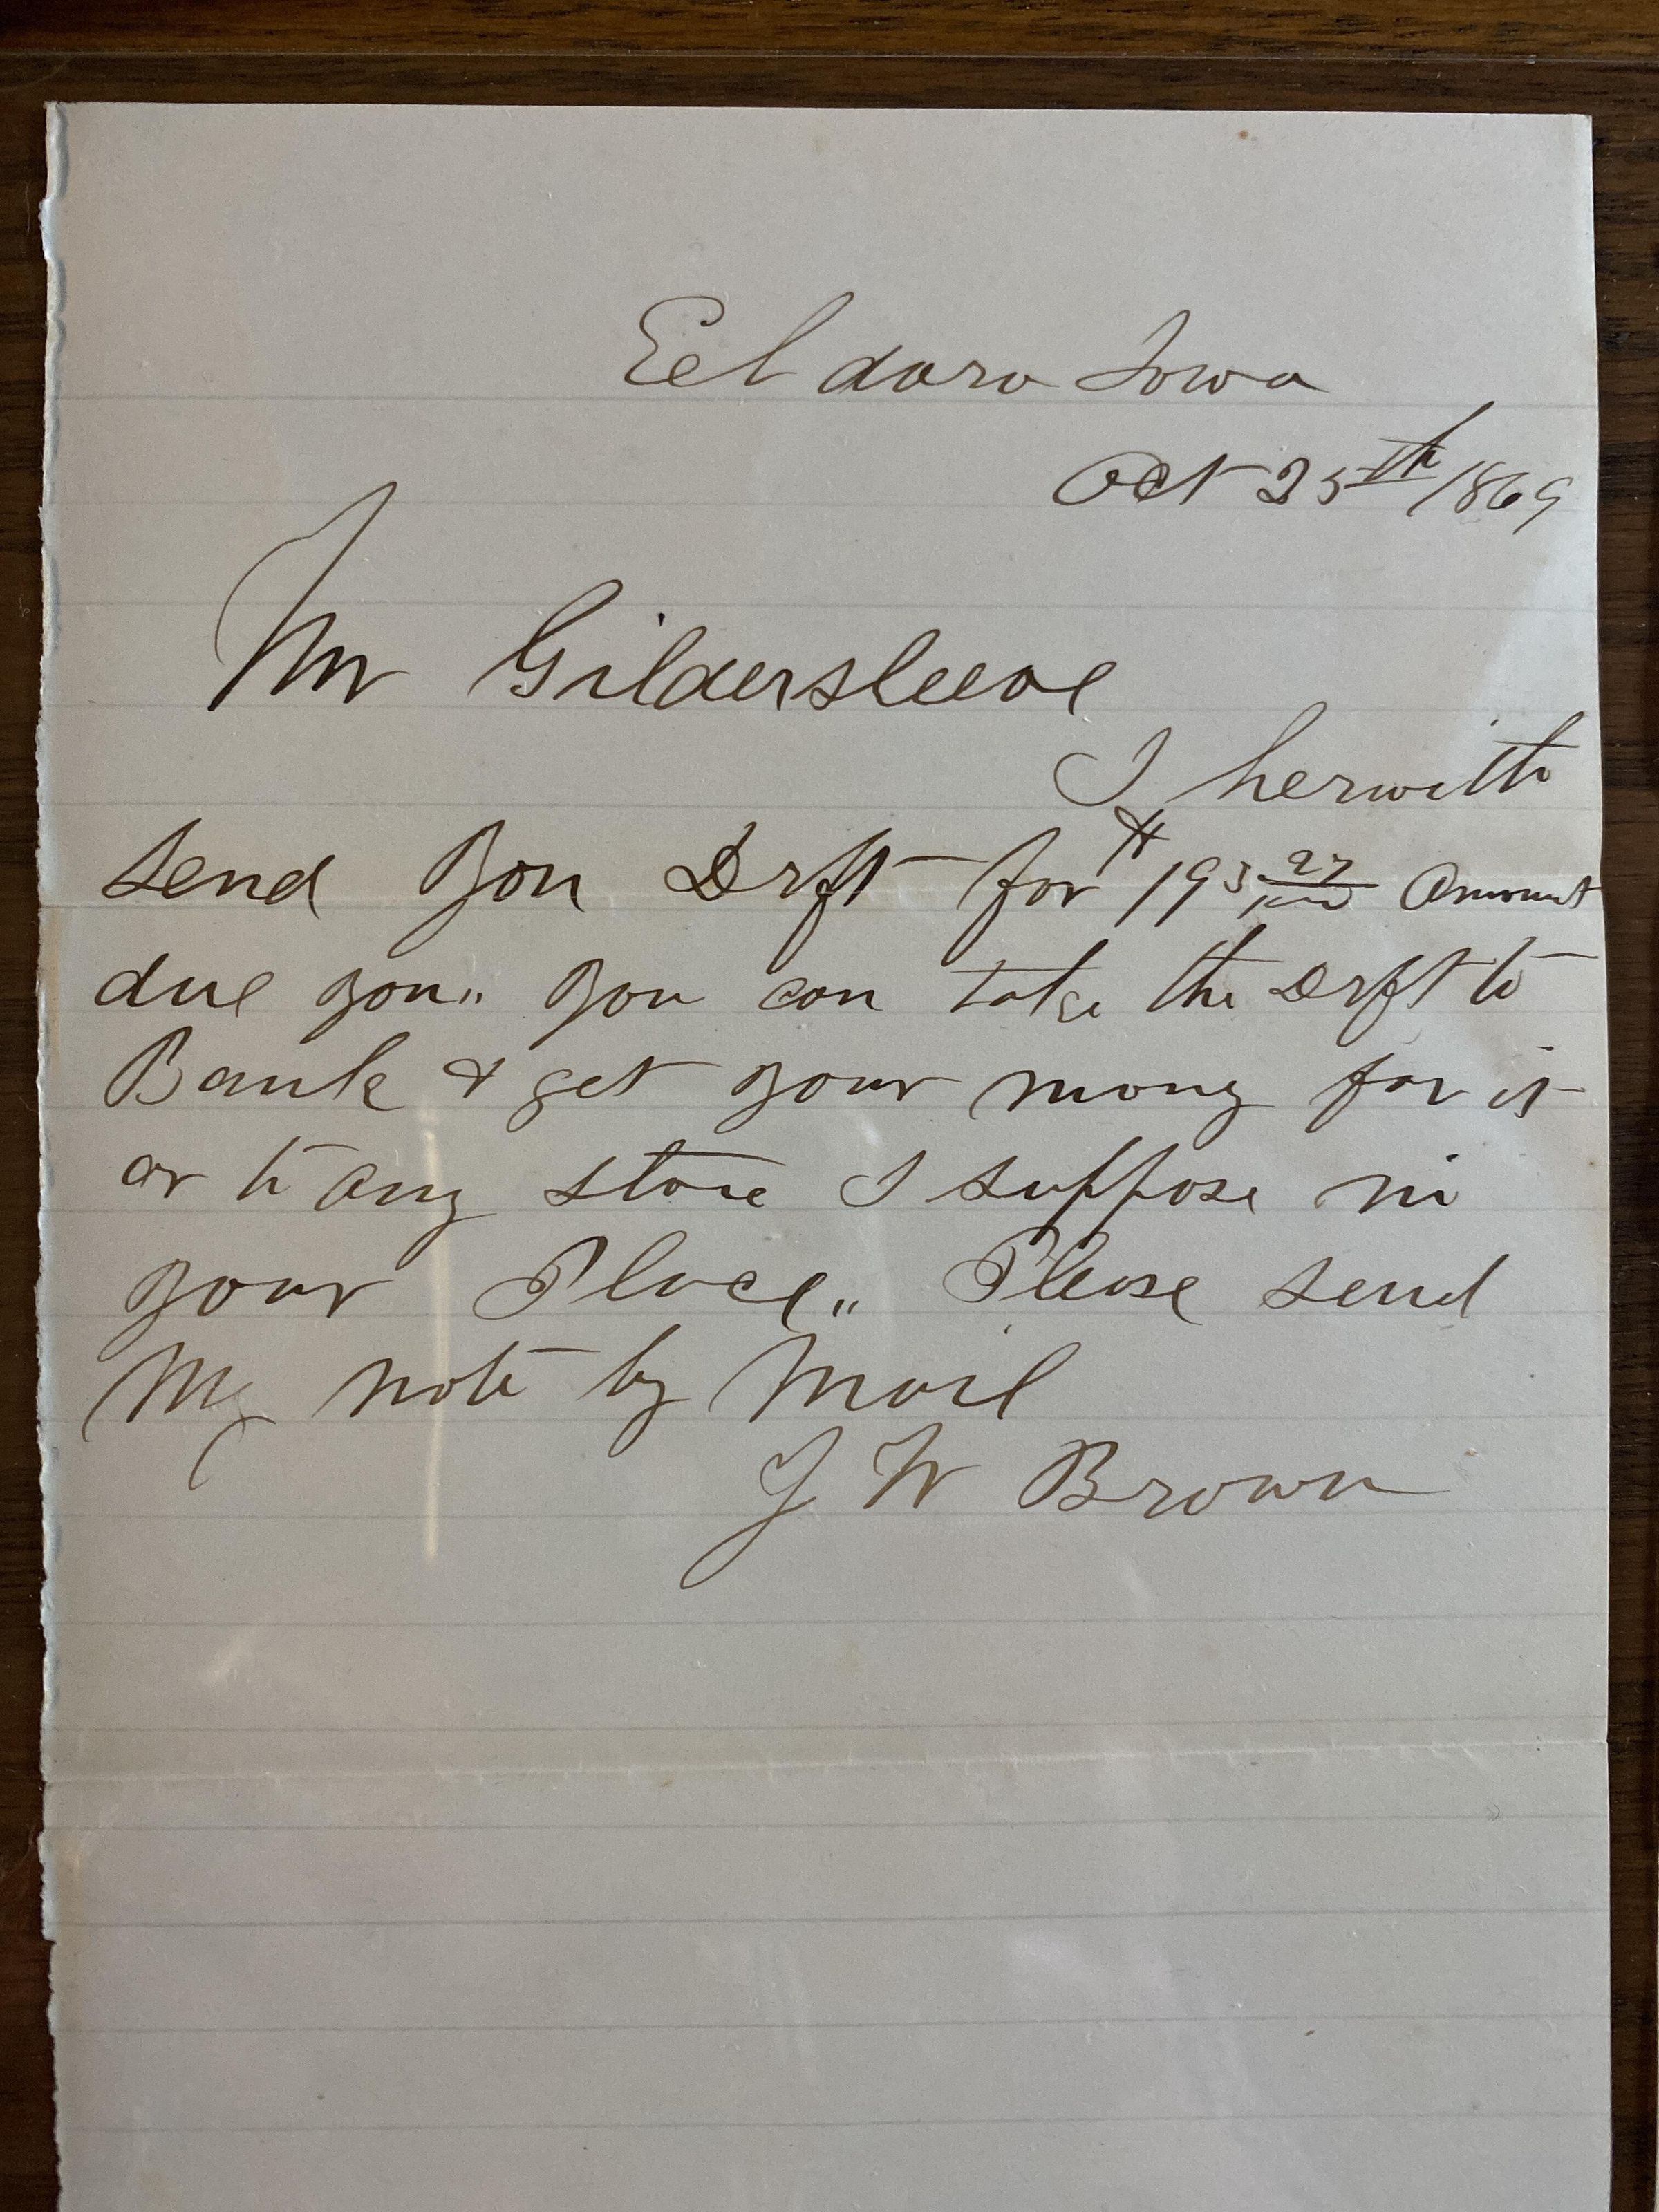 Eeldoro Iowa
Oct 25th 1869
Mr Gildersleeve
I herwith
send you Drft for $193 27/100 Amount
due you,, you can take the Drft to
Bank & get your mony for it
or to any store I suppose in
your Place,, Please send
My note by Mail
J W Brown